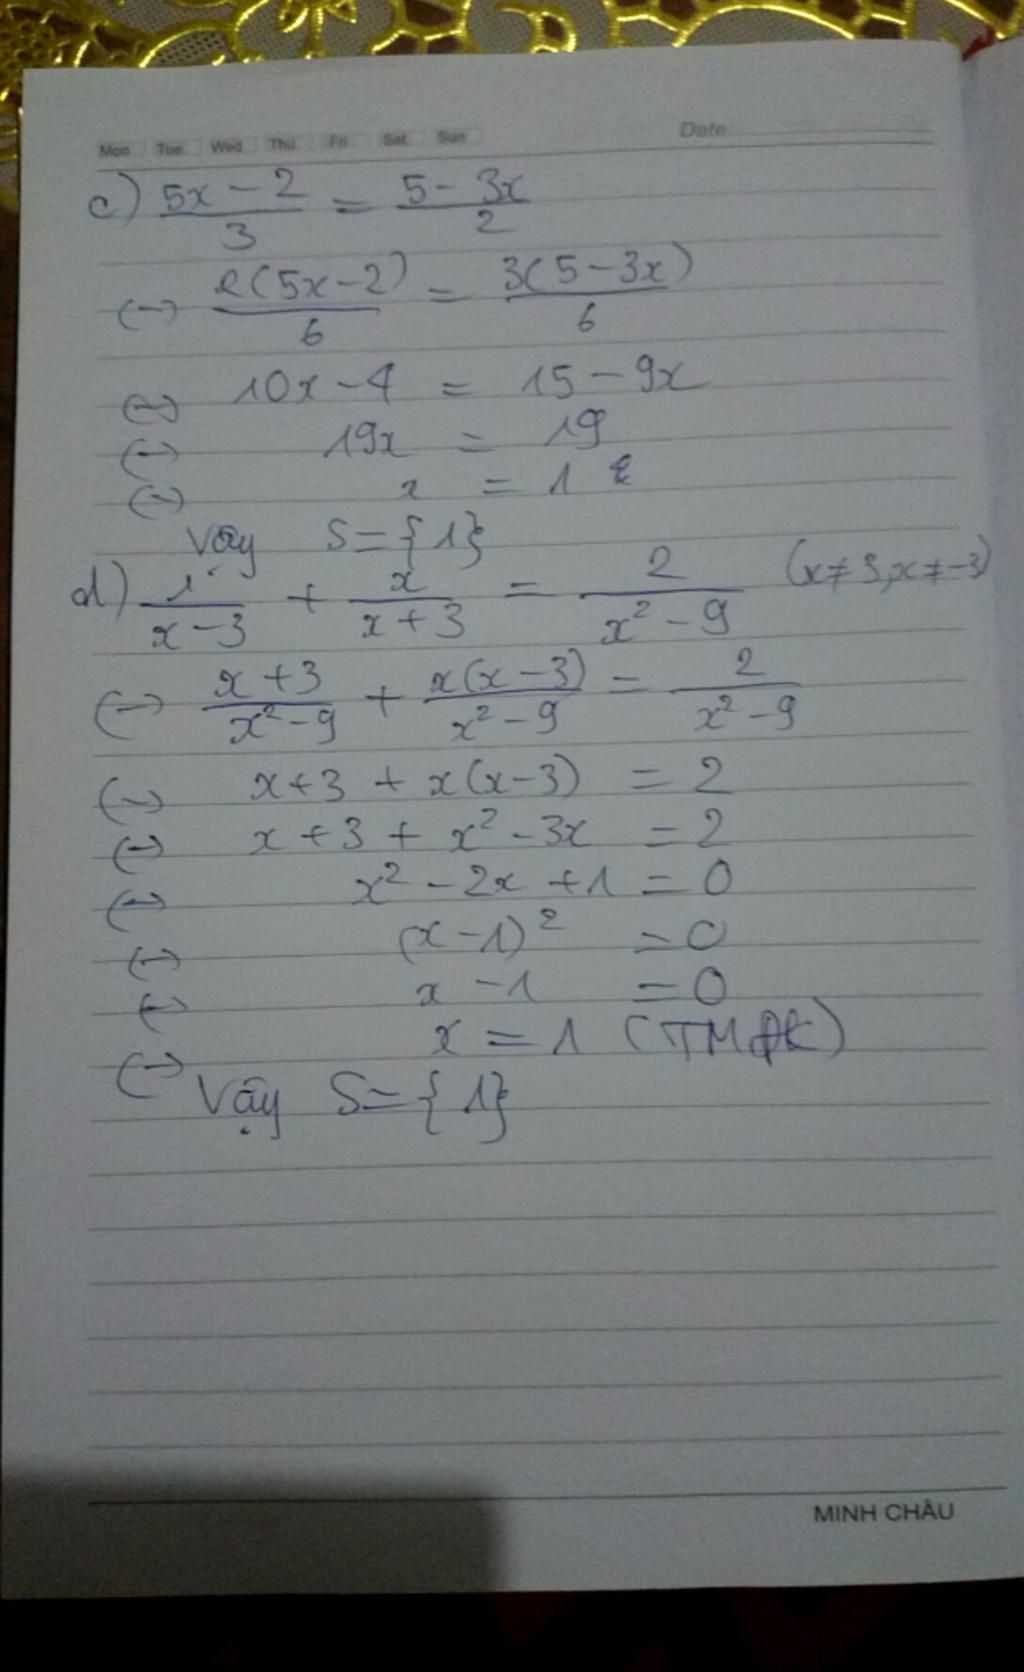 Mon Tue Wed Thu Fri Sat Sun Date:
c) (5x - 2)/3 = (5 - 3x)/2
(->) 2(5x - 2)/6 = 3(5 - 3x)/6
(->) 10x - 4 = 15 - 9x
(->) 19x = 19
(->) x = 1
Vậy S = {1}
d) 1/(x - 3) + x/(x + 3) = 2/(x² - 9) (x ≠ 3, x ≠ -3)
(->) (x + 3)/(x² - 9) + x(x - 3)/(x² - 9) = 2/(x² - 9)
(->) x + 3 + x(x - 3) = 2
(->) x + 3 + x² - 3x = 2
(->) x² - 2x + 1 = 0
(->) (x - 1)² = 0
(->) x - 1 = 0
(->) x = 1 (TMĐK)
Vậy S = {1}
MINH CHÂU